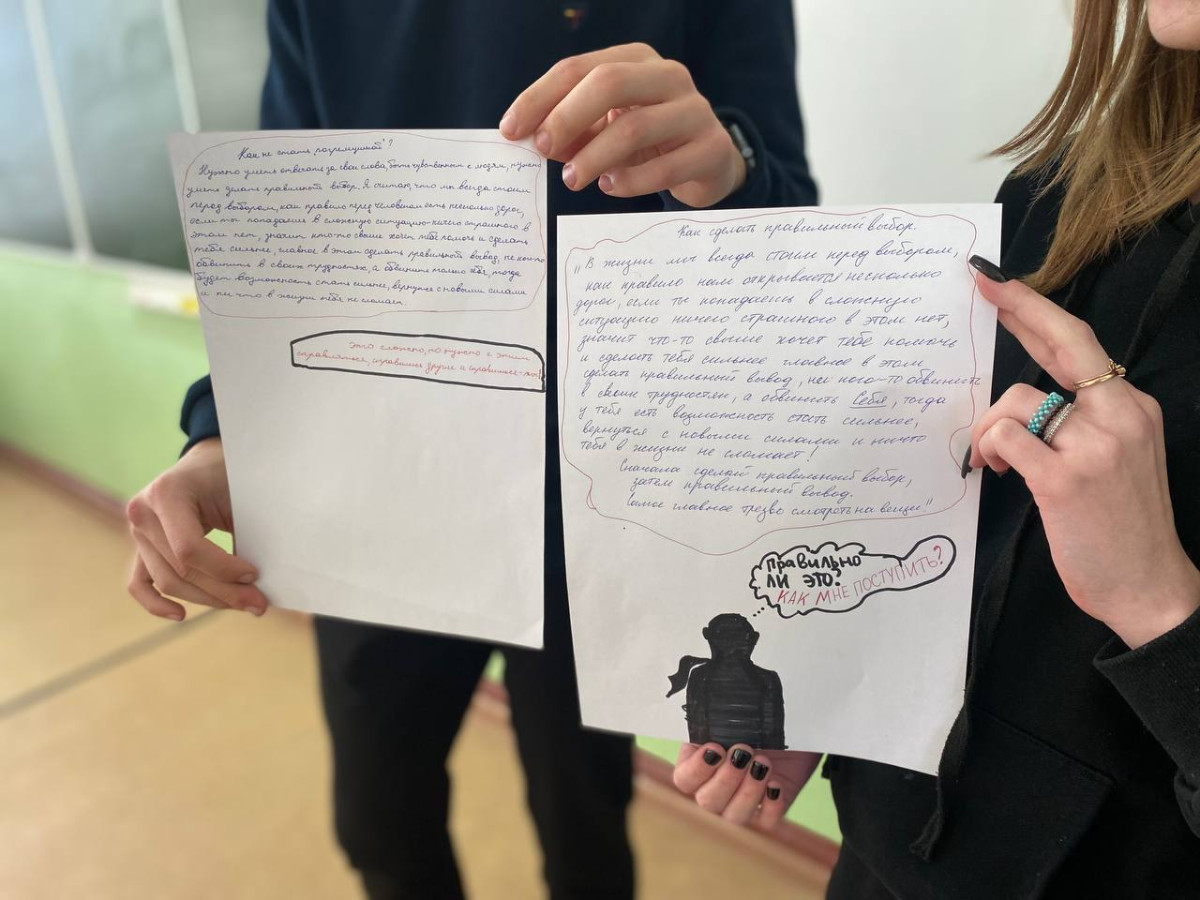 Как не стать "погремушкой"?
Нужно уметь отвечать за свои слова, быть чувственным с людям, нужно
уметь делать правильный выбор. Я считаю, что мы всегда стоим
перед выбором, как правило перед человеком есть несколько дорог,
если ты попадаешь в сложную ситуацию-ничего страшного в
этом нет, значит кто-то свыше хочет тебе помочь и сделать
тебя сильнее, главное в этом сделать правильный вывод, не кого-то
обвинить в своих трудностях, а обвинить только себя, тогда
будет возможность стать сильнее, вернуться с новыми силами
и ни что в жизни тебя не сломает.
Это сложно, но нужно с этим
справляться, справишься другие и справишься
Как сделать правильный выбор.
"В жизни мы всегда стоим перед выбором,
как правило нам открывается несколько
дорог, если ты попадаешь в сложную
ситуацию ничего страшного в этом нет,
значит что-то свыше хочет тебе помочь
и сделать тебя сильнее главное в этом
сделать правильный вывод, не кого-то обвинить
в своих трудностях, а обвинить себя, тогда
у тебя есть возможность стать сильнее,
вернуться с новыми силами и ничто
тебя в жизни не сломает!
Сначала сделай правильный выбор,
затем правильный вывод.
Самое главное трезво смотреть на вещи"
Правильно
ли это?
КАК МНЕ ПОСТУПИТЬ?